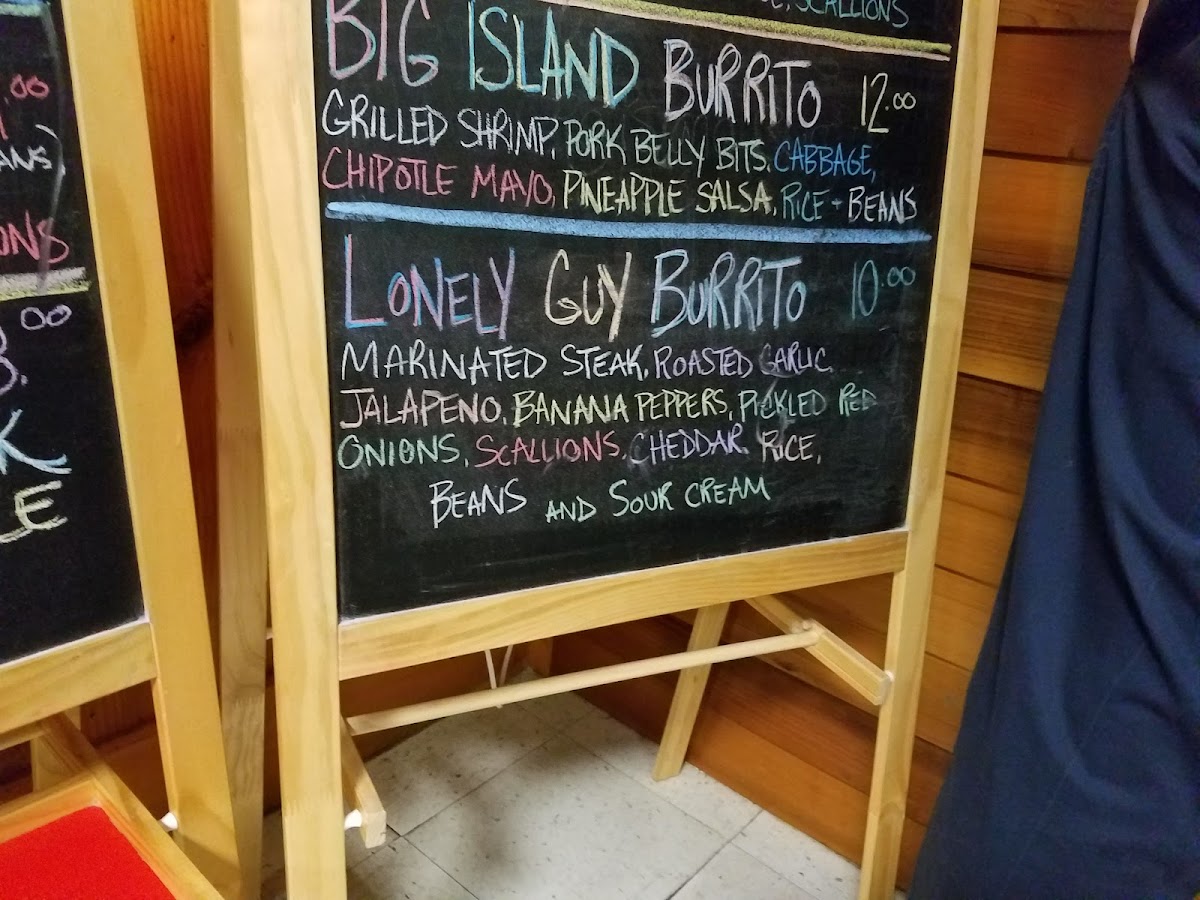 SCALLIONS
BIG ISLAND BURRITO 12.00
GRILLED SHRIMP, PORK BELLY BITS, CABBAGE,
CHIPOTLE MAYO, PINEAPPLE SALSA, RICE + BEANS
LONELY GUY BURRITO 10.00
MARINATED STEAK, ROASTED GARLIC,
JALAPENO, BANANA PEPPERS, PICKLED RED
ONIONS, SCALLIONS, CHEDDAR, RICE,
BEANS AND SOUR CREAM
.00
ANS,
ONS
00
K
LE